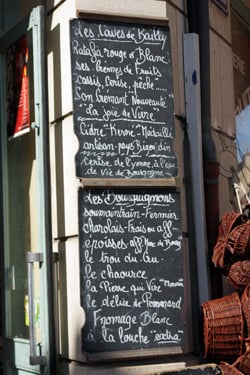 Les Caves de Bailly
Ratafia rouge et Blanc
ses Crèmes de Fruits
cassis, cerise, pêche....
Son Crémant "Nouveauté"
"La Joie de Vivre"
Cidre "Kerné" Médaillé
artisan - pays Bigoudin
Cerise de l'yonne, à l'eau
de Vie de Bourgogne
Les Bourguignons
Soumaintrain - Fermier
charolais - Frais ou aff
époisses aff Marc de Bourg
le trou du cru
le chaource
la Pierre qui Vire
le délice de Pommard
Fromage Blanc
à la louche "extra"